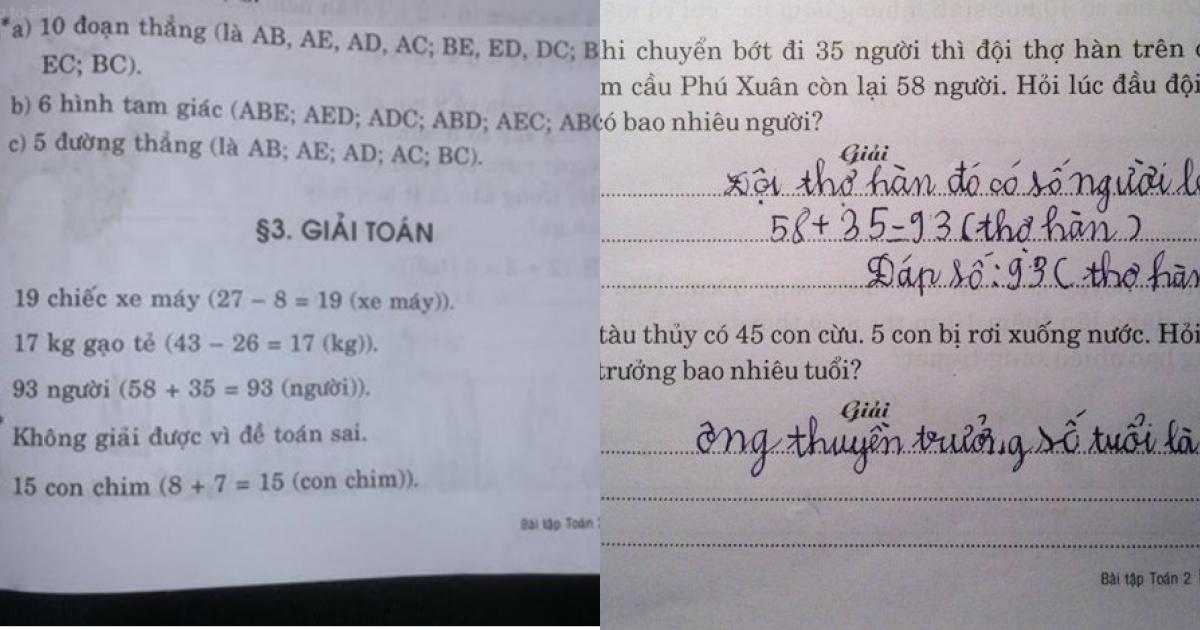 *a) 10 đoạn thẳng (là AB, AE, AD, AC; BE, ED, DC; B
EC; BC).
b) 6 hình tam giác (ABE; AED; ADC; ABD; AEC; ABC
c) 5 đường thẳng (là AB; AE; AD; AC; BC).
§3. GIẢI TOÁN
19 chiếc xe máy (27 – 8 = 19 (xe máy)).
17 kg gạo tẻ (43 – 26 = 17 (kg)).
93 người (58 + 35 = 93 (người)).
Không giải được vì đề toán sai.
15 con chim (8 + 7 = 15 (con chim)).
Bài tập Toán 2
hi chuyển bớt đi 35 người thì đội thợ hàn trên
m cầu Phú Xuân còn lại 58 người. Hỏi lúc đầu đội
ó bao nhiêu người?
Giải
Đội thợ hàn đó có số người l
58 + 35 = 93 (thợ hàn)
Đáp số: 93 (thợ hàn
tàu thủy có 45 con cừu. 5 con bị rơi xuống nước. Hỏi
trưởng bao nhiêu tuổi?
Giải
ông thuyền trưởng số tuổi là
Bài tập Toán 2